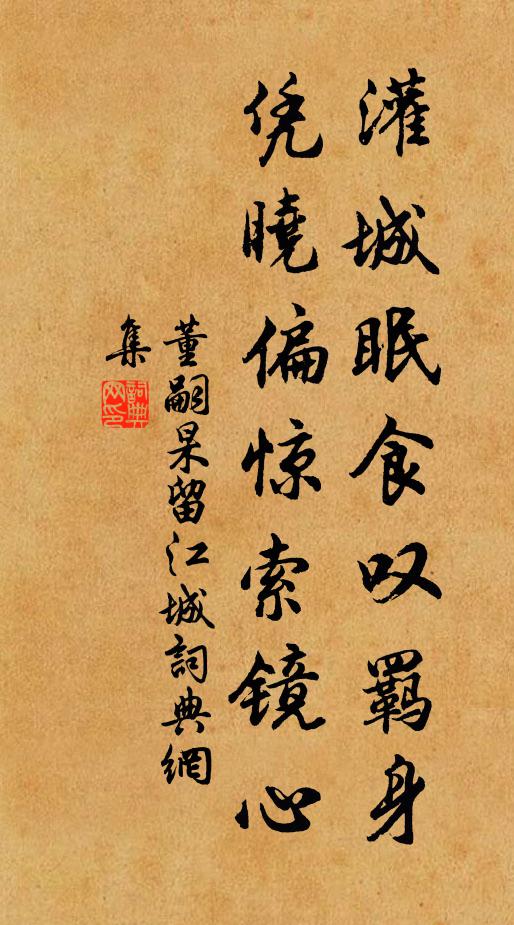 灌城眠食叹羁身
凭晓偏惊索镜心
董嗣杲留江城詞典網
集
詞典
网印